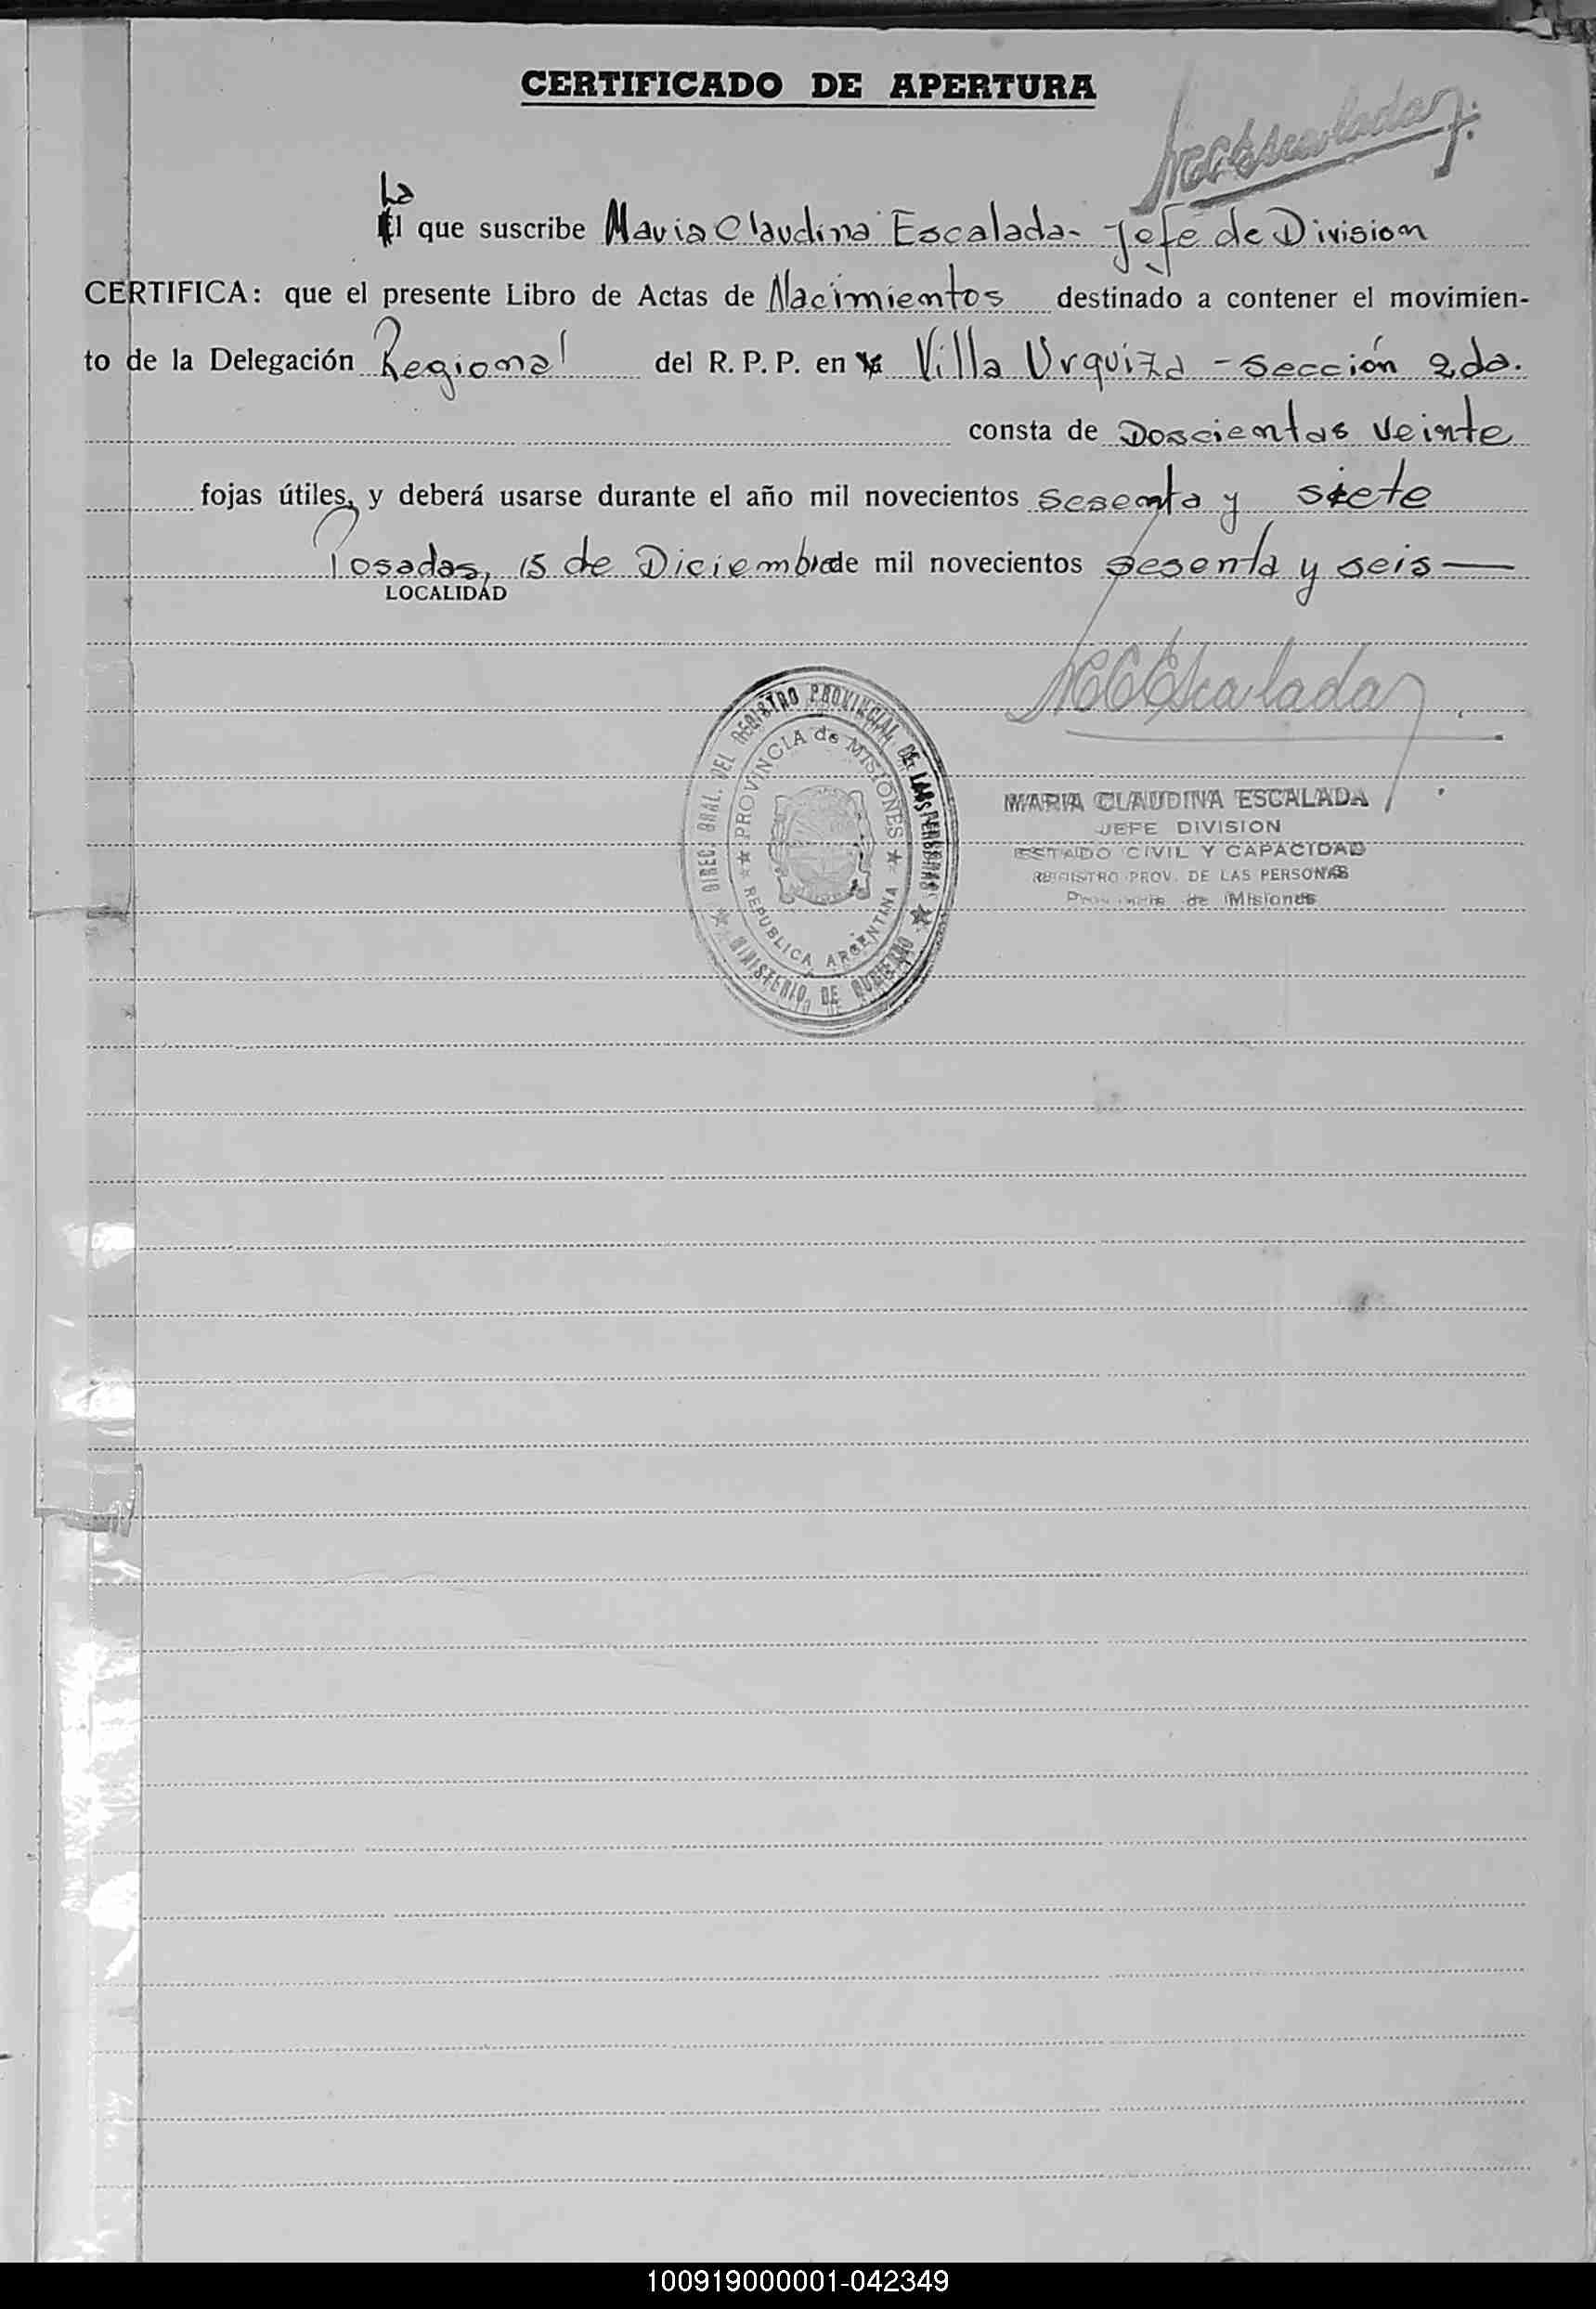 CERTIFICADO DE APERTURA
MCEscalada
La
El que suscribe Maria Claudina Escalada - Jefe de Division
CERTIFICA: que el presente Libro de Actas de Nacimientos destinado a contener el movimien-
to de la Delegación Regional del R. P. P. en Villa Urquiza - Sección 2da.
consta de Doscientas Veinte
fojas útiles, y deberá usarse durante el año mil novecientos sesenta y siete
Posadas, 15 de Diciembre de mil novecientos sesenta y seis
LOCALIDAD
MCEscalada
DIREC. GRAL. DEL REGISTRO PROVINCIAL DE LAS PERSONAS
PROVINCIA de MISIONES
REPUBLICA ARGENTINA
MINISTERIO DE GOBIERNO
MARIA CLAUDINA ESCALADA
JEFE DIVISION
ESTADO CIVIL Y CAPACIDAD
REGISTRO PROV. DE LAS PERSONAS
Provincia de Misiones
100919000001-042349